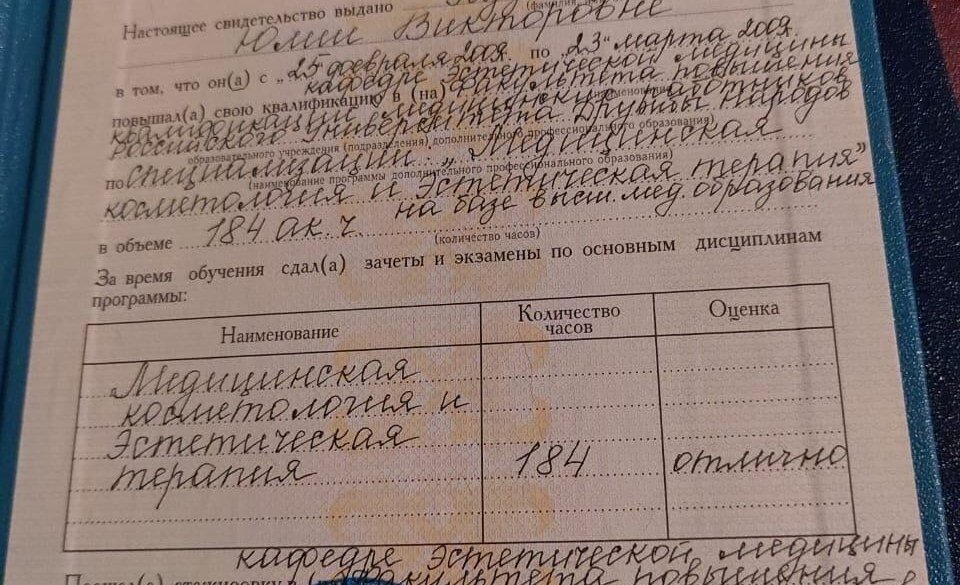 Настоящее свидетельство выдано
Юлии Викторовне
в том, что он(а) с „25“ февраля 2009г. по „23“ марта 2009г.
повышал(а) свою квалификацию в (на) кафедре Эстетической медицины
факультета повышения
квалификации медицинских работников
Российского Университета Дружбы Народов
образовательного учреждения (подразделения) дополнительного профессионального образования)
по специализации „Медицинская
(наименование программы дополнительного профессионального образования)
косметология и Эстетическая терапия”
на базе высш. мед. образования
в объеме 184 ак. ч.
(количество часов)
За время обучения сдал(а) зачеты и экзамены по основным дисциплинам
программы:
Наименование Количество часов Оценка
Медицинская
косметология и
Эстетическая
терапия 184 отлично
кафедре Эстетической медицины
факультета повышения